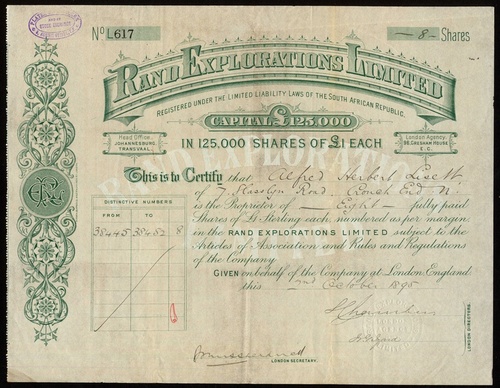 No L617
—8— Shares
RAND EXPLORATIONS LIMITED
REGISTERED UNDER THE LIMITED LIABILITY LAWS OF THE SOUTH AFRICAN REPUBLIC.
CAPITAL £125,000
Head Office
JOHANNESBURG,
TRANSVAAL.
London Agency
GRESHAM HOUSE
E.C.
IN 125,000 SHARES OF £1 EACH
RAND EXPLORATIONS
This is to Certify that Alfred Herbert
of 7 Road. Crouch End N.
is the Proprietor of Eight fully paid
Shares of £1 Sterling each, numbered as per margin
in the RAND EXPLORATIONS LIMITED subject to the
Articles of Association and Rules and Regulations
of the Company.
GIVEN on behalf of the Company at London, England
this October 1895
DISTINCTIVE NUMBERS
FROM TO
38445 38452 8
LONDON SECRETARY.
LONDON DIRECTORS.